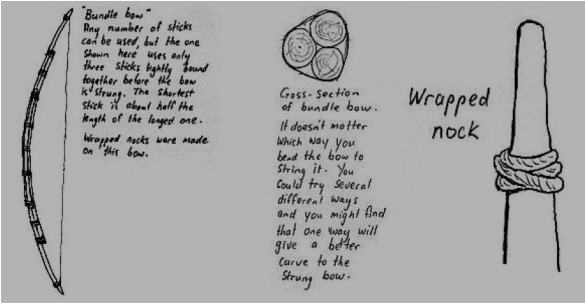 "Bundle bow"
Any number of sticks
can be used, but the one
shown here uses only
three sticks tightly bound
together before the bow
is strung. The shortest
stick is about half the
length of the longed one.
Wrapped nocks were made
on this bow.
Cross-section
of bundle bow.
It doesn't matter
which way you
bend the bow to
string it. You
could try several
different ways
and you might find
that one way will
give a better
curve to the
strung bow.
Wrapped
nock